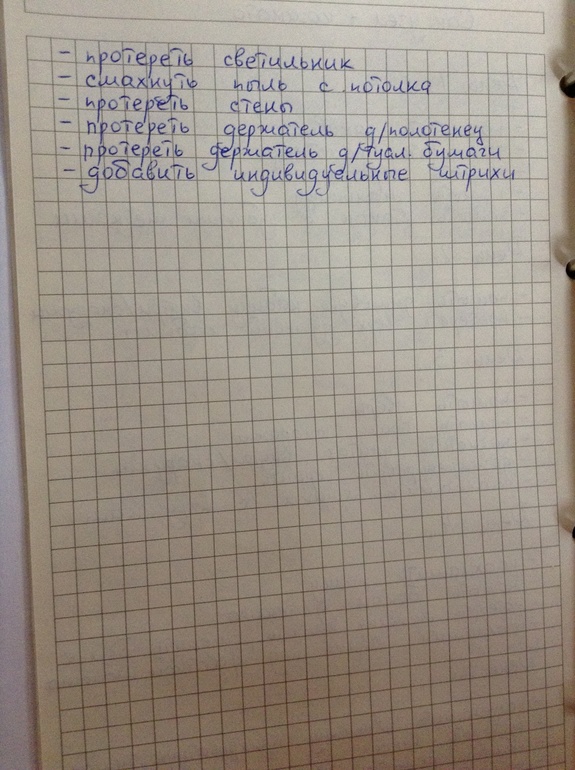 - протереть светильник
- смахнуть пыль с потолка
- протереть стены
- протереть держатель д/полотенец
- протереть держатель д/туал. бумаги
- добавить индивидуельные штрихи